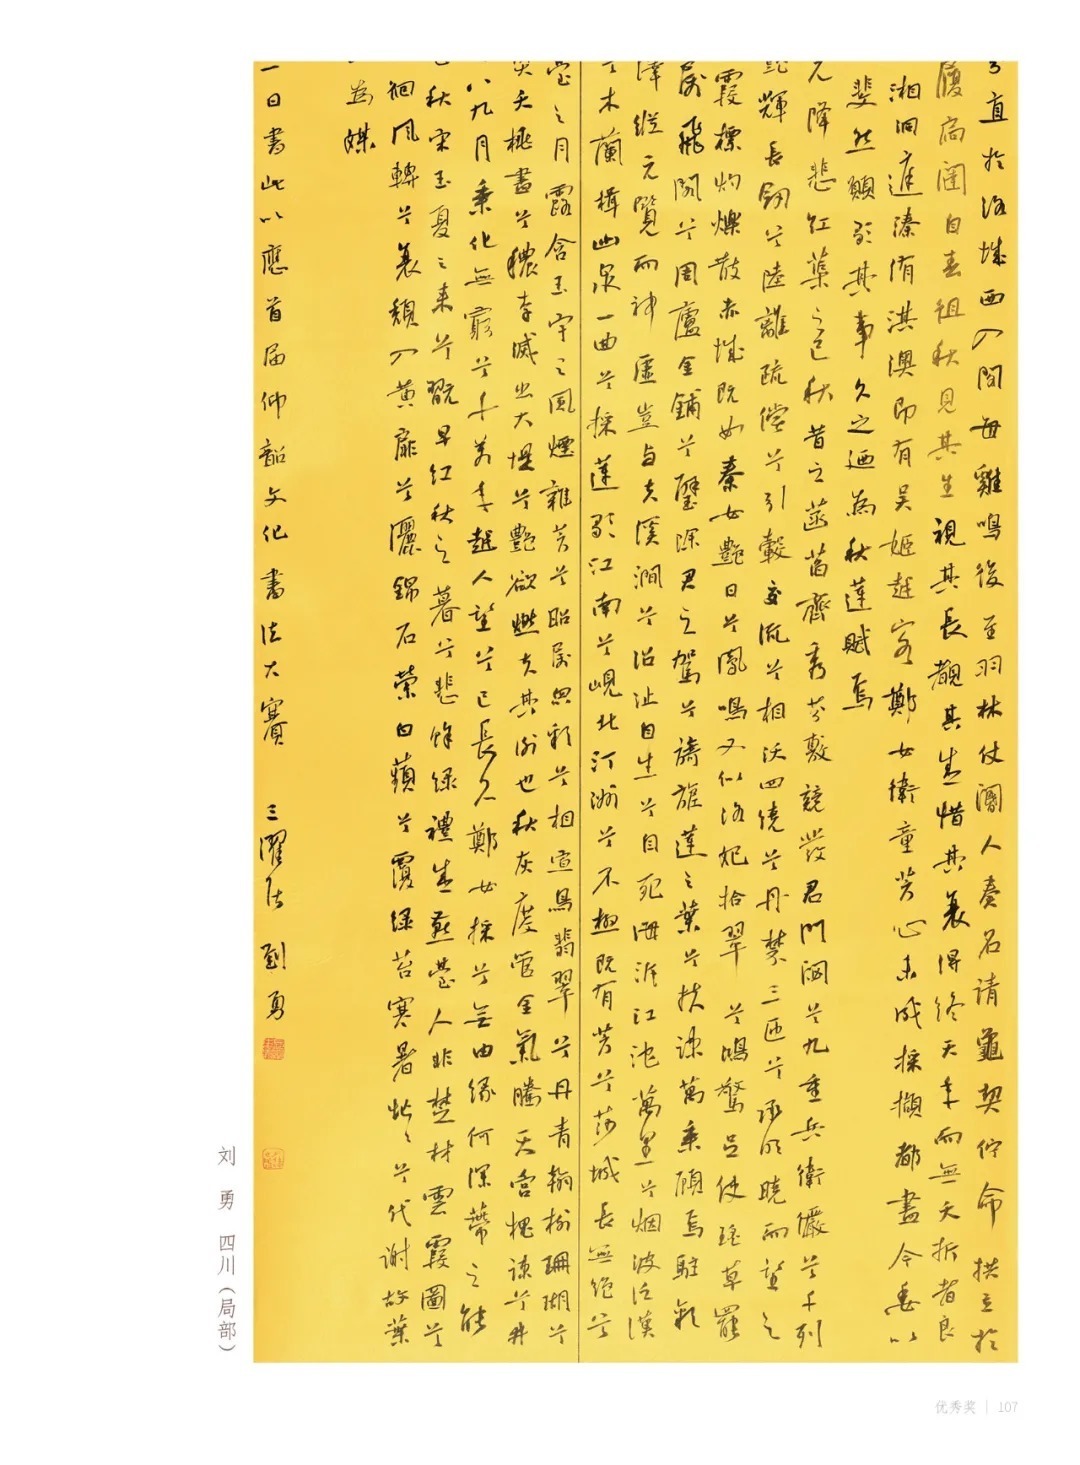 直於洛城西入閣每雞鳴後至羽林仗閽人奏名請龜契佇命拱立於
履扃闈自春徂秋見其生視其長覩其盛惜其衰得終天年而無夭折者良
湘洞庭溱洧淇澳即有吳姬越客鄭女衛童芳心未成採擷都盡今委以
斐然願歌其事久之迺為秋蓮賦焉
降悲紅蕖之已秋昔之菡萏齊秀芬敷競發君門閟兮九重兵衛儼兮千列
輝長劒兮陸離疏兮引轂交流兮相沃四繞兮丹禁三匝兮承明曉而望之
霞標灼爍散赤城既如秦女艷日兮鳳鳴又似洛妃拾翠兮鴻驚足使瑤草罷
飛閣兮周廬金鋪兮璧除君之駕兮旖旎蓮之葉兮扶疎萬乘顧焉駐彩
澤縱元覽而神虛豈與夫溪澗兮沼沚自生兮自死海沂江沱萬里兮烟波泛漢
兮木蘭楫幽泉一曲兮採蓮歌江南兮峴北汀洲兮不極既有芳兮莎城長無絕兮
臺之月露含玉宇之風煙雜芳兮昭彩兮相宣鳥翡翠兮丹青翰樹珊瑚兮
夭桃盡兮穠李滅出大堤兮艷欲燃夫其謝也秋灰度管金氣騰天宮槐疎兮井
八九月乘化無窮兮千萬年越人望兮已長久鄭女採兮無由緣何深蒂之能
秋宋玉夏之來兮翫早紅秋之暮兮悲餘綠禮盛燕臺人非楚材雲霞圖兮
徊風轉兮衰頹入黃扉兮灑錦石縈白蘋兮覆綠苔寒暑茫茫兮代謝故葉
為媒
一日書此以應首屆仰韶文化書法大賽 三濯居 劉勇
刘勇 四川（局部）
优秀奖 | 107